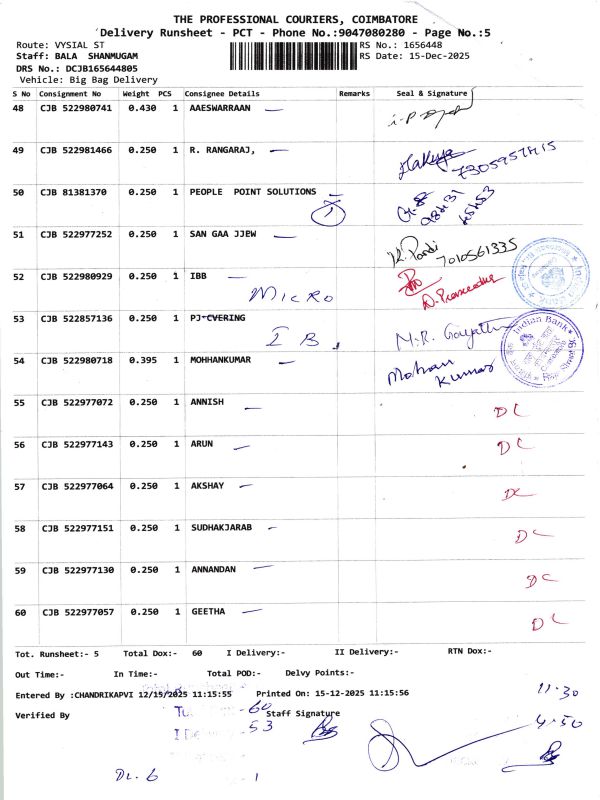 THE PROFESSIONAL COURIERS, COIMBATORE
Delivery Runsheet - PCT - Phone No.:9047080280 - Page No.:5
Route: VYSIAL ST
RS No.: 1656448
Staff: BALA SHANMUGAM
RS Date: 15-Dec-2025
DRS No.: DCJB165644805
Vehicle: Big Bag Delivery
S No Consignment No Weight PCS Consignee Details Remarks Seal & Signature
48 CJB 522980741 0.430 1 AAESWARRAAN
49 CJB 522981466 0.250 1 R. RANGARAJ,
50 CJB 81381370 0.250 1 PEOPLE POINT SOLUTIONS
51 CJB 522977252 0.250 1 SAN GAA JJEW
K. Pandi
7010561335
52 CJB 522980929 0.250 1 IBB
MICRO
53 CJB 522857136 0.250 1 PJ CVERING
I B
M.R. Gayathri
Indian Bank
54 CJB 522980718 0.395 1 MOHHANKUMAR
Mohan
Kumar
55 CJB 522977072 0.250 1 ANNISH
DC
56 CJB 522977143 0.250 1 ARUN
DC
57 CJB 522977064 0.250 1 AKSHAY
DC
58 CJB 522977151 0.250 1 SUDHAKJARAB
DC
59 CJB 522977130 0.250 1 ANNANDAN
DC
60 CJB 522977057 0.250 1 GEETHA
DC
Tot. Runsheet:- 5 Total Dox:- 60 I Delivery:- II Delivery:- RTN Dox:-
Out Time:- In Time:- Total POD:- Delvy Points:-
Entered By :CHANDRIKAPVI 12/15/2025 11:15:55 Printed On: 15-12-2025 11:15:56
11.30
Verified By
60
Staff Signature
53
4.50
DL. 6
1